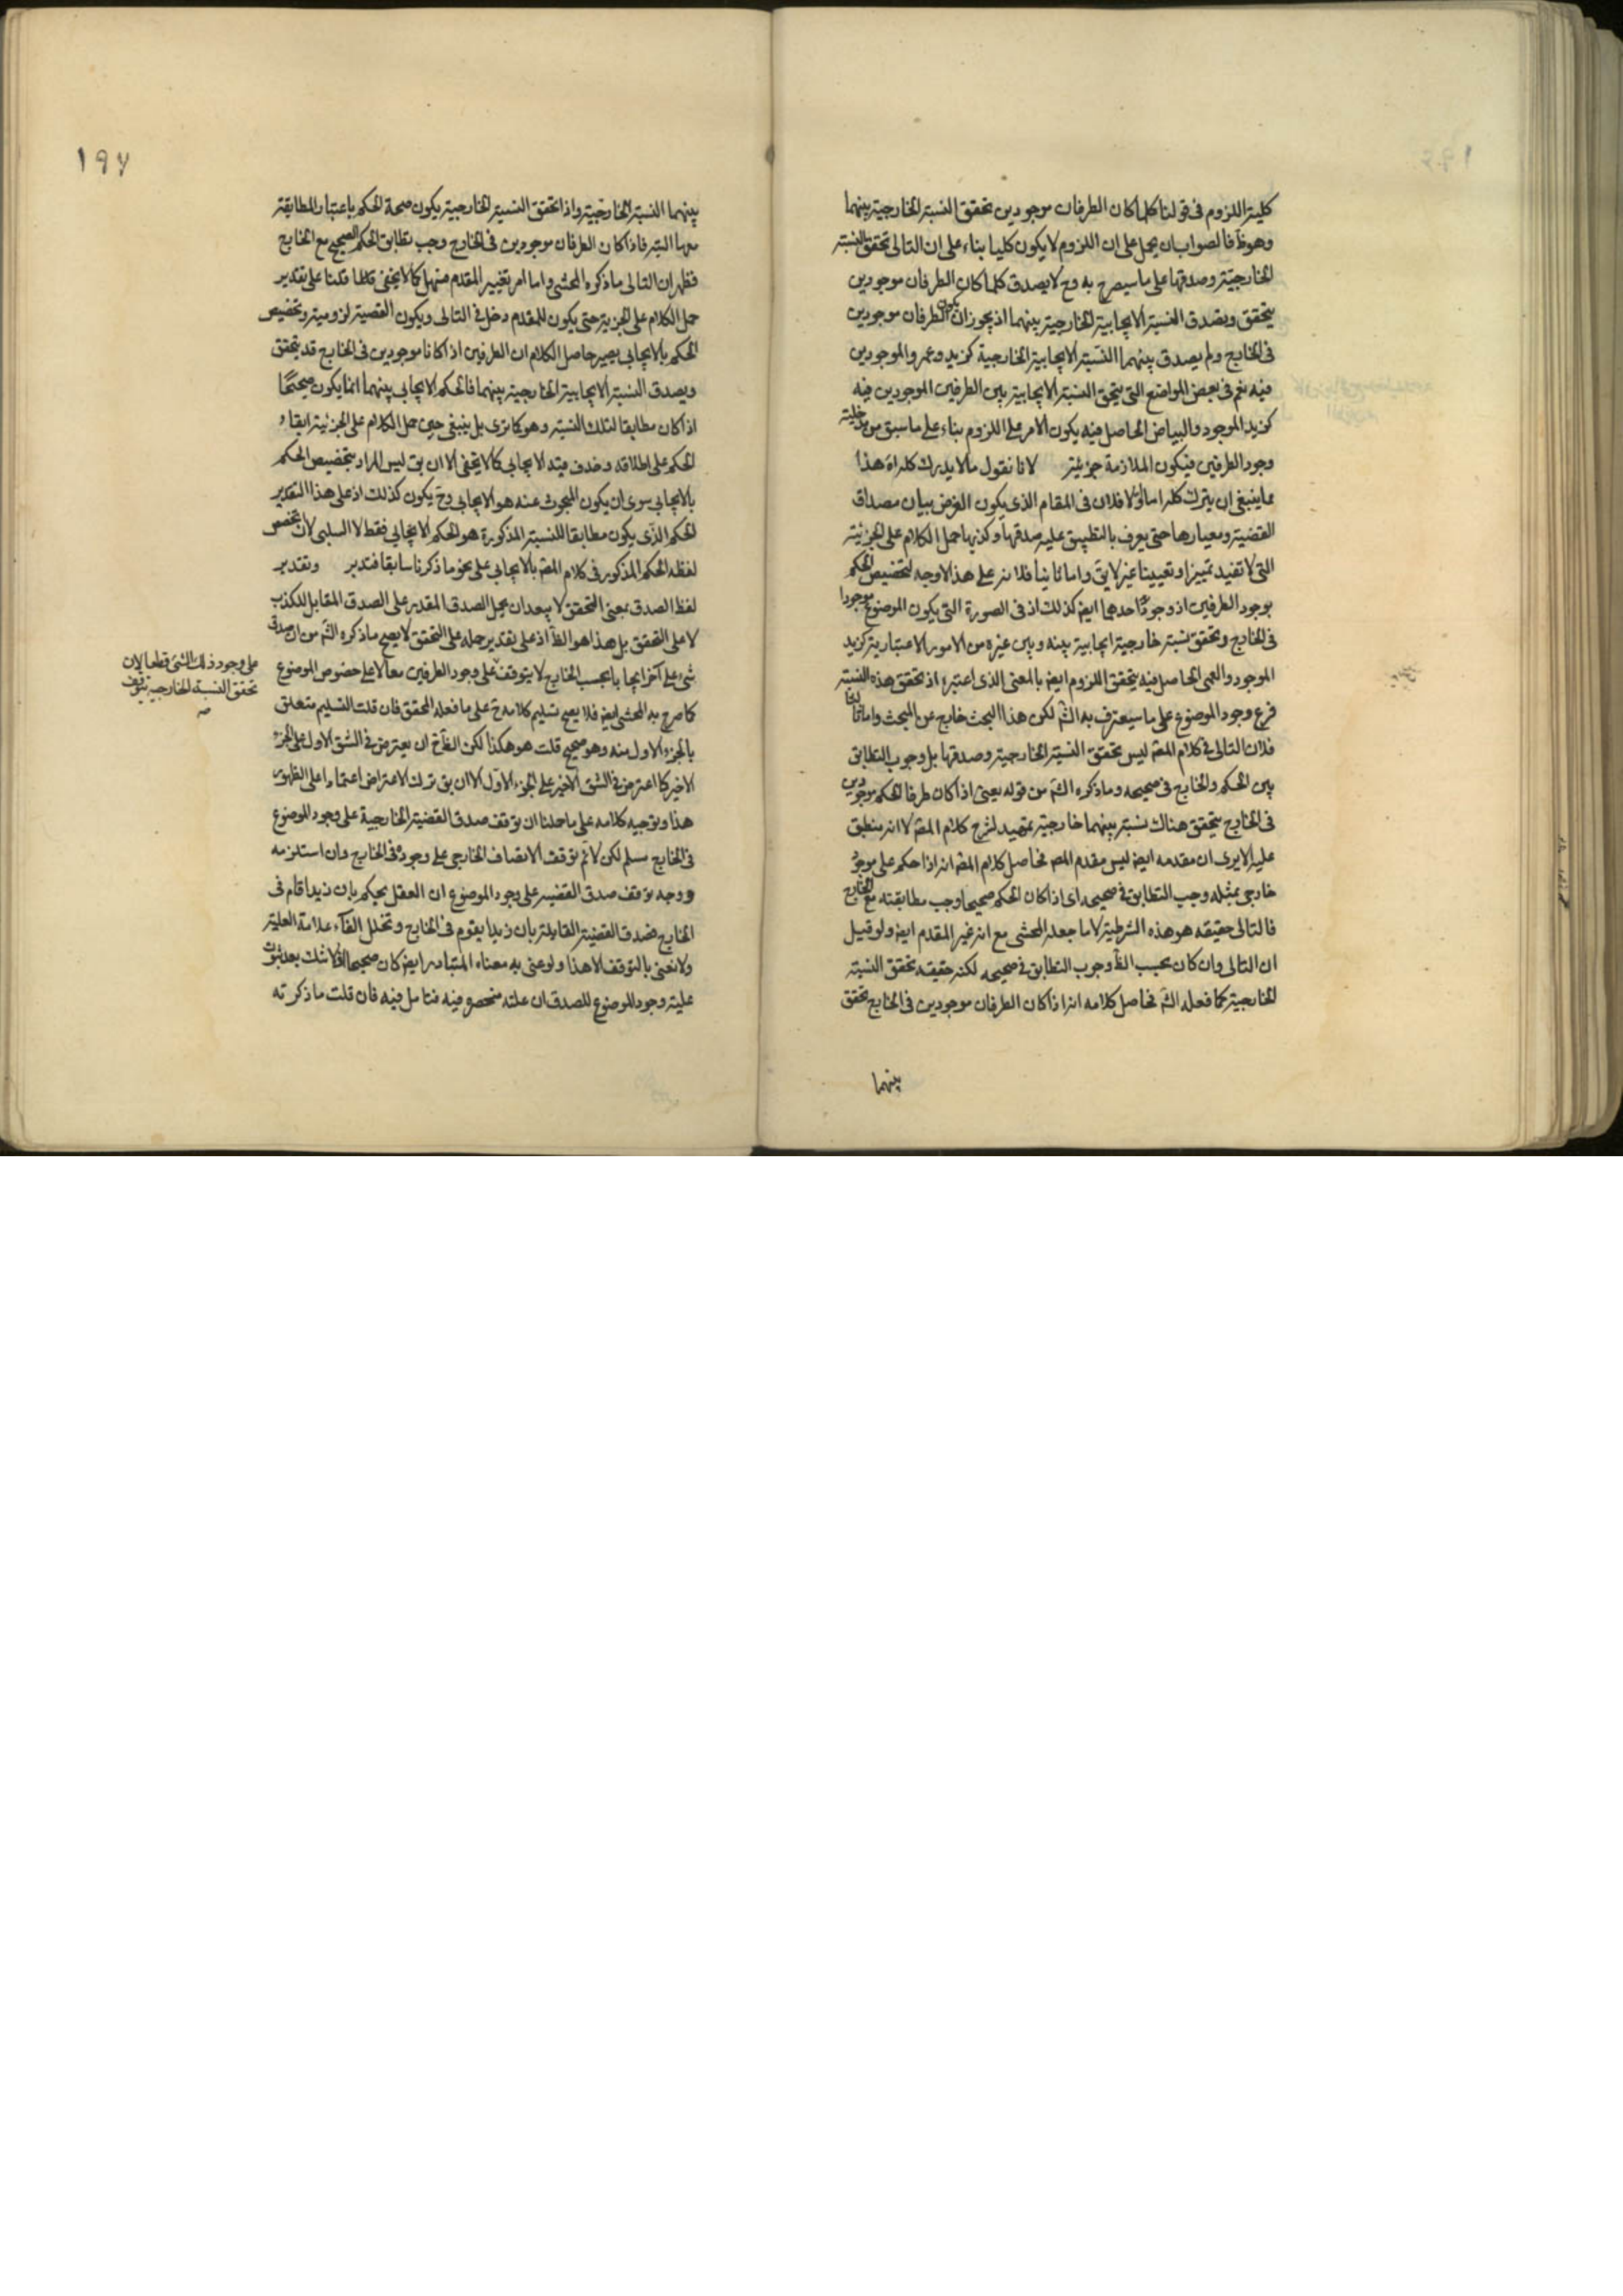 كلية اللزوم فى قولنا كلما كان الطرفان موجودين تحقق النسبة الخارجية بينهما
وهو ظ فالصواب ان يحمل على ان اللزوم لا يكون كليا بناء على ان التالى تحقق النسبة
الخارجية وصدقها على ما سيصرح به وح لا يصدق كلما كان الطرفان موجودين
يتحقق ويصدق النسبة الايجابية الخارجية بينهما اذ يجوز ان يكون الطرفان موجودين
فى الخارج ولم يصدق بينهما النسبة الايجابية الخارجية كزيد وعمرو الموجودين
فيه نعم فى بعض المواضع التى يتحقق النسبة الايجابية بين الطرفين الموجودين فيه
كزيد الموجود والبياض الحاصل فيه يكون الامر على اللزوم بناء على ما سبق من مدخلية
وجود الطرفين فيكون الملازمة جزئية لانا نقول ما لا يدرك كله لا هذا
مما ينبغى ان يترك كله اما اولا فلان فى المقام الذى يكون الغرض بيان مصداق
القضية ومعيارها حتى يعرف بالتطبيق عليه صدقها وكذبها حمل الكلام على الجزئية
التى لا تفيد تمييزا وتعيينا غير لايق واما ثانيا فلانه على هذا لا وجه لتخصيص الحكم
بوجود الطرفين اذ وجود احدهما ايضا كذلك اذ فى الصورة التى يكون الموضوع موجودا
فى الخارج وتحقق نسبة خارجية ايجابية بينه وبين غيره من الامور الاعتبارية كزيد
الموجود والعمى الحاصل فيه يتحقق اللزوم ايضا بالمعنى الذى اعتبره اذ تحقق هذه النسبة
فرع وجود الموضوع على ما سيعترف به الش لكن هذا البحث خارج عن البحث واما ثالثا
فلان التالى فى كلام المص ليس تحقق النسبة الخارجية وصدقها بل وجوب التطابق
بين الحكم والخارج فى صحيحه وما ذكره الش من قوله يعنى اذا كان طرفا الحكم موجودين
فى الخارج يتحقق هناك نسبة بينهما خارجية تمهيد لشرح كلام المص لا انه منطبق
عليه الا يرى ان مقدمه ايضا ليس مقدم المص فحاصل كلام المص انه اذا حكم على موجود
خارجى بمثله وجب التطابق فى صحيحه اى اذا كان الحكم صحيحا وجب مطابقته مع الخارج
فالتالى حقيقة هو هذه الشرطية لا ما جعله المحشى مع انه غير المقدم ايضا ولو قيل
ان التالى وان كان بحسب الظ وجوب التطابق فى صحيحه لكنه حقيقة تحقق النسبة
الخارجية كما فعله الش فحاصل كلامه انه اذا كان الطرفان موجودين فى الخارج تحقق
بينهما
١٩٧
بينهما النسبة الخارجية واذا تحقق النسبة الخارجية يكون صحة الحكم باعتبار المطابقة
معها البتة فاذا كان الطرفان موجودين فى الخارج وجب تطابق الحكم الصحيح مع الخارج
فظهر ان التالى ما ذكره المحشى واما امر تغيير المقدم فسهل كما لا يخفى قلنا قلنا على تقدير
حمل الكلام على الجزئية حتى يكون للمقدم دخل فى التالى ويكون القضية لزومية وتخصيص
الحكم بالايجابى يصير حاصل الكلام ان الطرفين اذا كانا موجودين فى الخارج قد يتحقق
ويصدق النسبة الايجابية الخارجية بينهما فالحكم الايجابى بينهما انما يكون صحيحا
اذا كان مطابقا لتلك النسبة وهو كما ترى بل ينبغى حين حمل الكلام على الجزئية ابقاء
الحكم على اطلاقه وحذف قيد الايجابى كما لا يخفى الا ان يق ليس المراد بتخصيص الحكم
بالايجابى سوى ان يكون المبحوث عنه هو الايجابى وح يكون كذلك اذ على هذا التقدير
الحكم الذى يكون مطابقا للنسبة المذكورة هو الحكم الايجابى فقط لا السلبى لا ان تخصص
لفظ الحكم المذكور فى كلام المص بالايجابى على نحو ما ذكرنا سابقا فتدبر وتقدير
لفظ الصدق بمعنى التحقق لا يبعد ان يحمل الصدق المقدر على الصدق المقابل للكذب
لا على التحقق بل هذا هو الظ اذ على تقدير حمله على التحقق لا يصح ما ذكره الش من ان صدق
شىء على آخر ايجابا بحسب الخارج لا يتوقف على وجود الطرفين معا لا على خصوص الموضوع
كما صرح به المحشى ايضا فلا يصح تسليم كلامه ح على ما فعله المحقق فان قلت التسليم متعلق
بالجزء الاول منه وهو صحيح قلت هو هكذا لكن الظ ح ان يعترض فى الشق الاول على الجزء
الاخير كما اعترض فى الشق الاخير على الجزء الاول الا ان يق ترك الاعتراض اعتمادا على الظهور
هذا وتوجيه كلامه على ما حملنا ان توقف صدق القضية الخارجية على وجود الموضوع
فى الخارج مسلم لكن لا ثم توقف الاتصاف الخارجى على وجوده فى الخارج وان استلزمه
ووجه توقف صدق القضية على وجود الموضوع ان العقل يحكم بان زيدا قام فى
الخارج فصدق القضية القايلة بان زيدا يقوم فى الخارج وتخلل الفاء علامة العلية
ولا نعنى بالتوقف الا هذا ولو عنى به معناه المتبادر ايضا كان صحيحا اذ لا شك بعد ثبوت
علية وجود الموضوع للصدق ان علته منحصر فيه فتامل فيه فان قلت ما ذكرته
على وجود ذلك الشئ قطعا لان
تحقق النسبة الخارجية يتوقف
صح